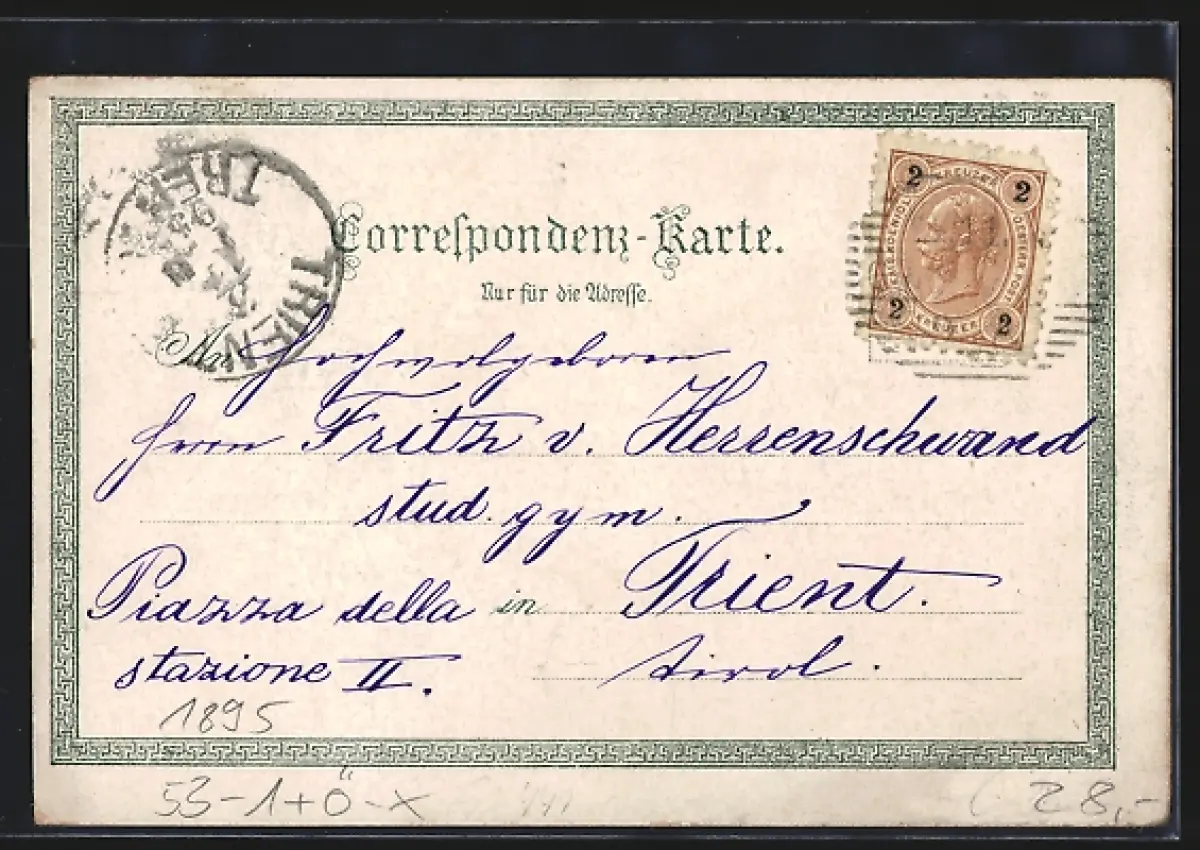 Correspondenz-Karte.
Nur für die Adresse.
An Hochwolgeboren
Herrn Fritz v. Herrenschwand
stud. gym.
Piazza della in Trient.
stazione II. Tirol.
1895
53-1+Ö-X
28,-
TRIENT
2 KREUZER 2
2 KREUZER 2